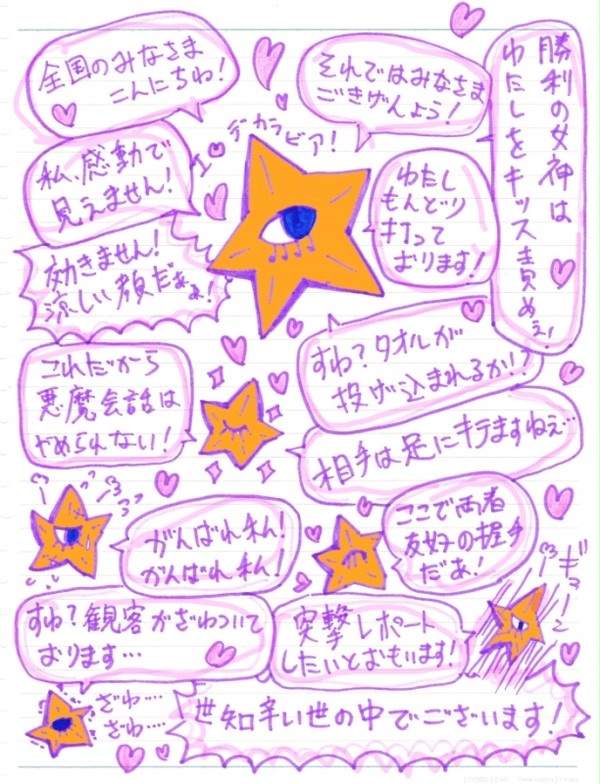 全国のみなさま
こんにちわ!
それではみなさま
ごきげんよう!
勝利の女神は
わたしをキッス責めぇ!
I♡デカラビア!
私、感動で
見えません!
わたし
もんどり
打って
おります!
効きません!
涼しい顔だぁぁ!
すわ?タオルが
投げ込まれるか!?
これだから
悪魔会話は
やめらんない!
相手は足にキテますねぇ…
がんばれ私!
がんばれ私!
ここで両者
友好の握手
だぁ!
すわ?観客がざわついて
おります…
突撃レポート
したいとおもいます!
ざわ…
ざわ…
世知辛い世の中でございます!